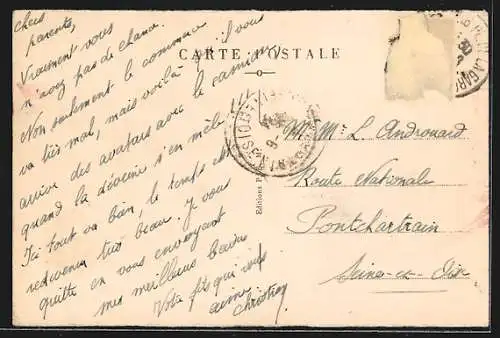 chers
parents,
Vraiment vous
n'avez pas de chance.
Non seulement le commerce
va très mal, mais voilà qu'il vous
arrive des avatars avec le camion
quand la déveine s'en mêle !!!
Ici tout va bien, le temps est
redevenu très beau. Je vous
quitte en vous envoyant
mes meilleurs baisers
Votre fils qui vous
aime
CARTE POSTALE
Editions
M. Mme L. Androuard
Route Nationale
Pontchartrain
Seine-et-Oise